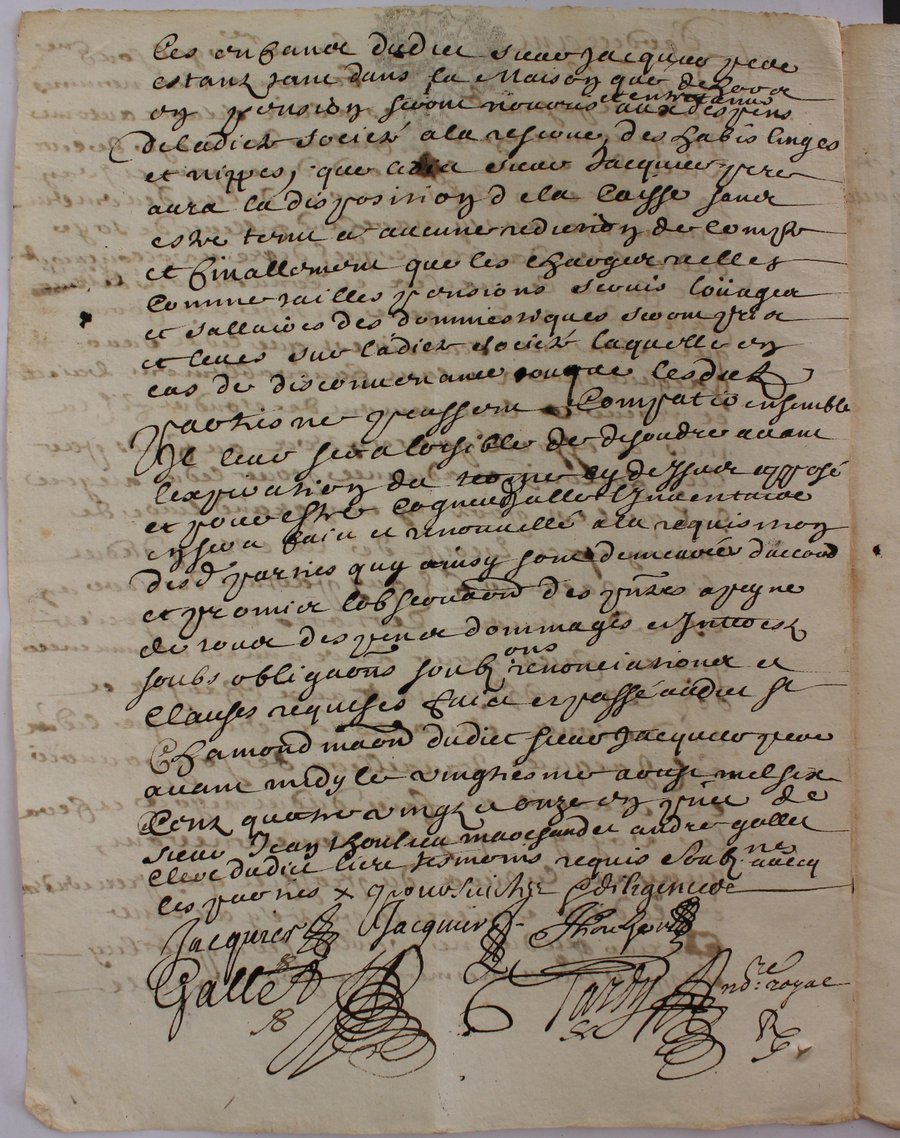 les enfans dudict sieur Jacquier pere
estant tant dans la Maison que dehors
en pension seront nourris et entretenus aux despens
de ladicte societé a la reserve des habis linges
et nippes, que ledict sieur Jacquier pere
aura la disposition de la caisse sans
estre tenu a aucune redition de compte
et finallement que les charges
comme tailles pensions louages
et sallaires des dommestiques seront pris
et leves sur ladicte societé laquelle en
cas de disconvenance que lesdictes
parties ne peussent ensemble
Il leur sera loisible de disoudre avant
l'expiration du terme cy dessus apposé
et pour estre Inventaire
en sera faict et renouvellé a la requisition
des d parties quy ainsy sont demeurées d'accord
et promis l'observaon des pntes a peyne
de tous despens dommages et Interest
soubs obligaons soubons renonciations et
clauses requises faict et passé audict St
Chamond maon dudict sieur Jacquier pere
avant midy le vingtiesme aoust mil six
cent quatre vingt et onze en pnce de
sieur Jean marchand et andré gallet
clerc dudict lieu tesmoins requis soubnes avecq
les parties x
Jacquier Jacquier
Gallet Tardy nore royal